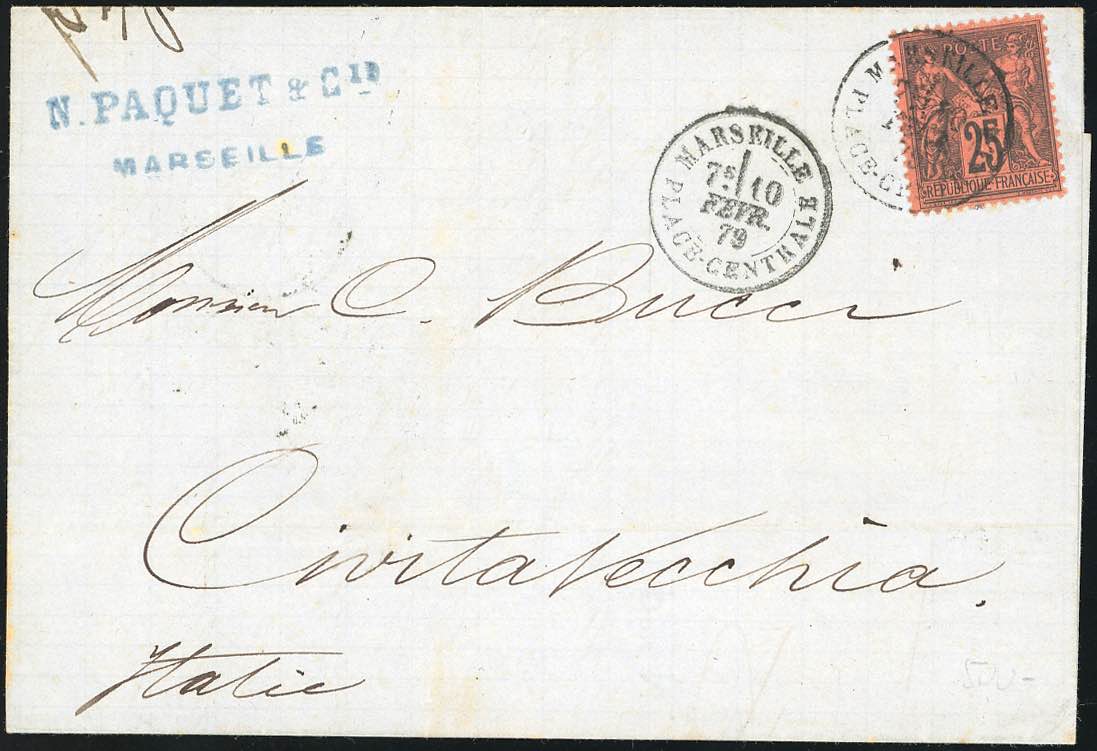 N. PAQUET & Cie
MARSEILLE
MARSEILLE
PLACE-CE
POSTE
25
REPUBLIQUE FRANÇAISE
MARSEILLE
7E/10
FEVR.
79
PLACE-CENTRALE
Monsieur C. Bucci
CivitaVecchia.
Italie